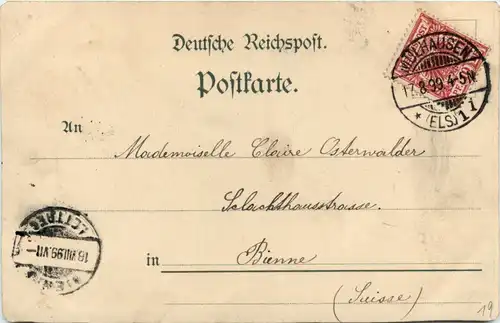 Deutsche Reichspost.
Postkarte.
MÜLHAUSEN
17.8.99.4-5N
* (ELS) 1 i
An
Mademoiselle Claire Osterwalder
Schlachthausstrasse.
in Bienne
(Suisse)
18.VIII.99.VII-
19